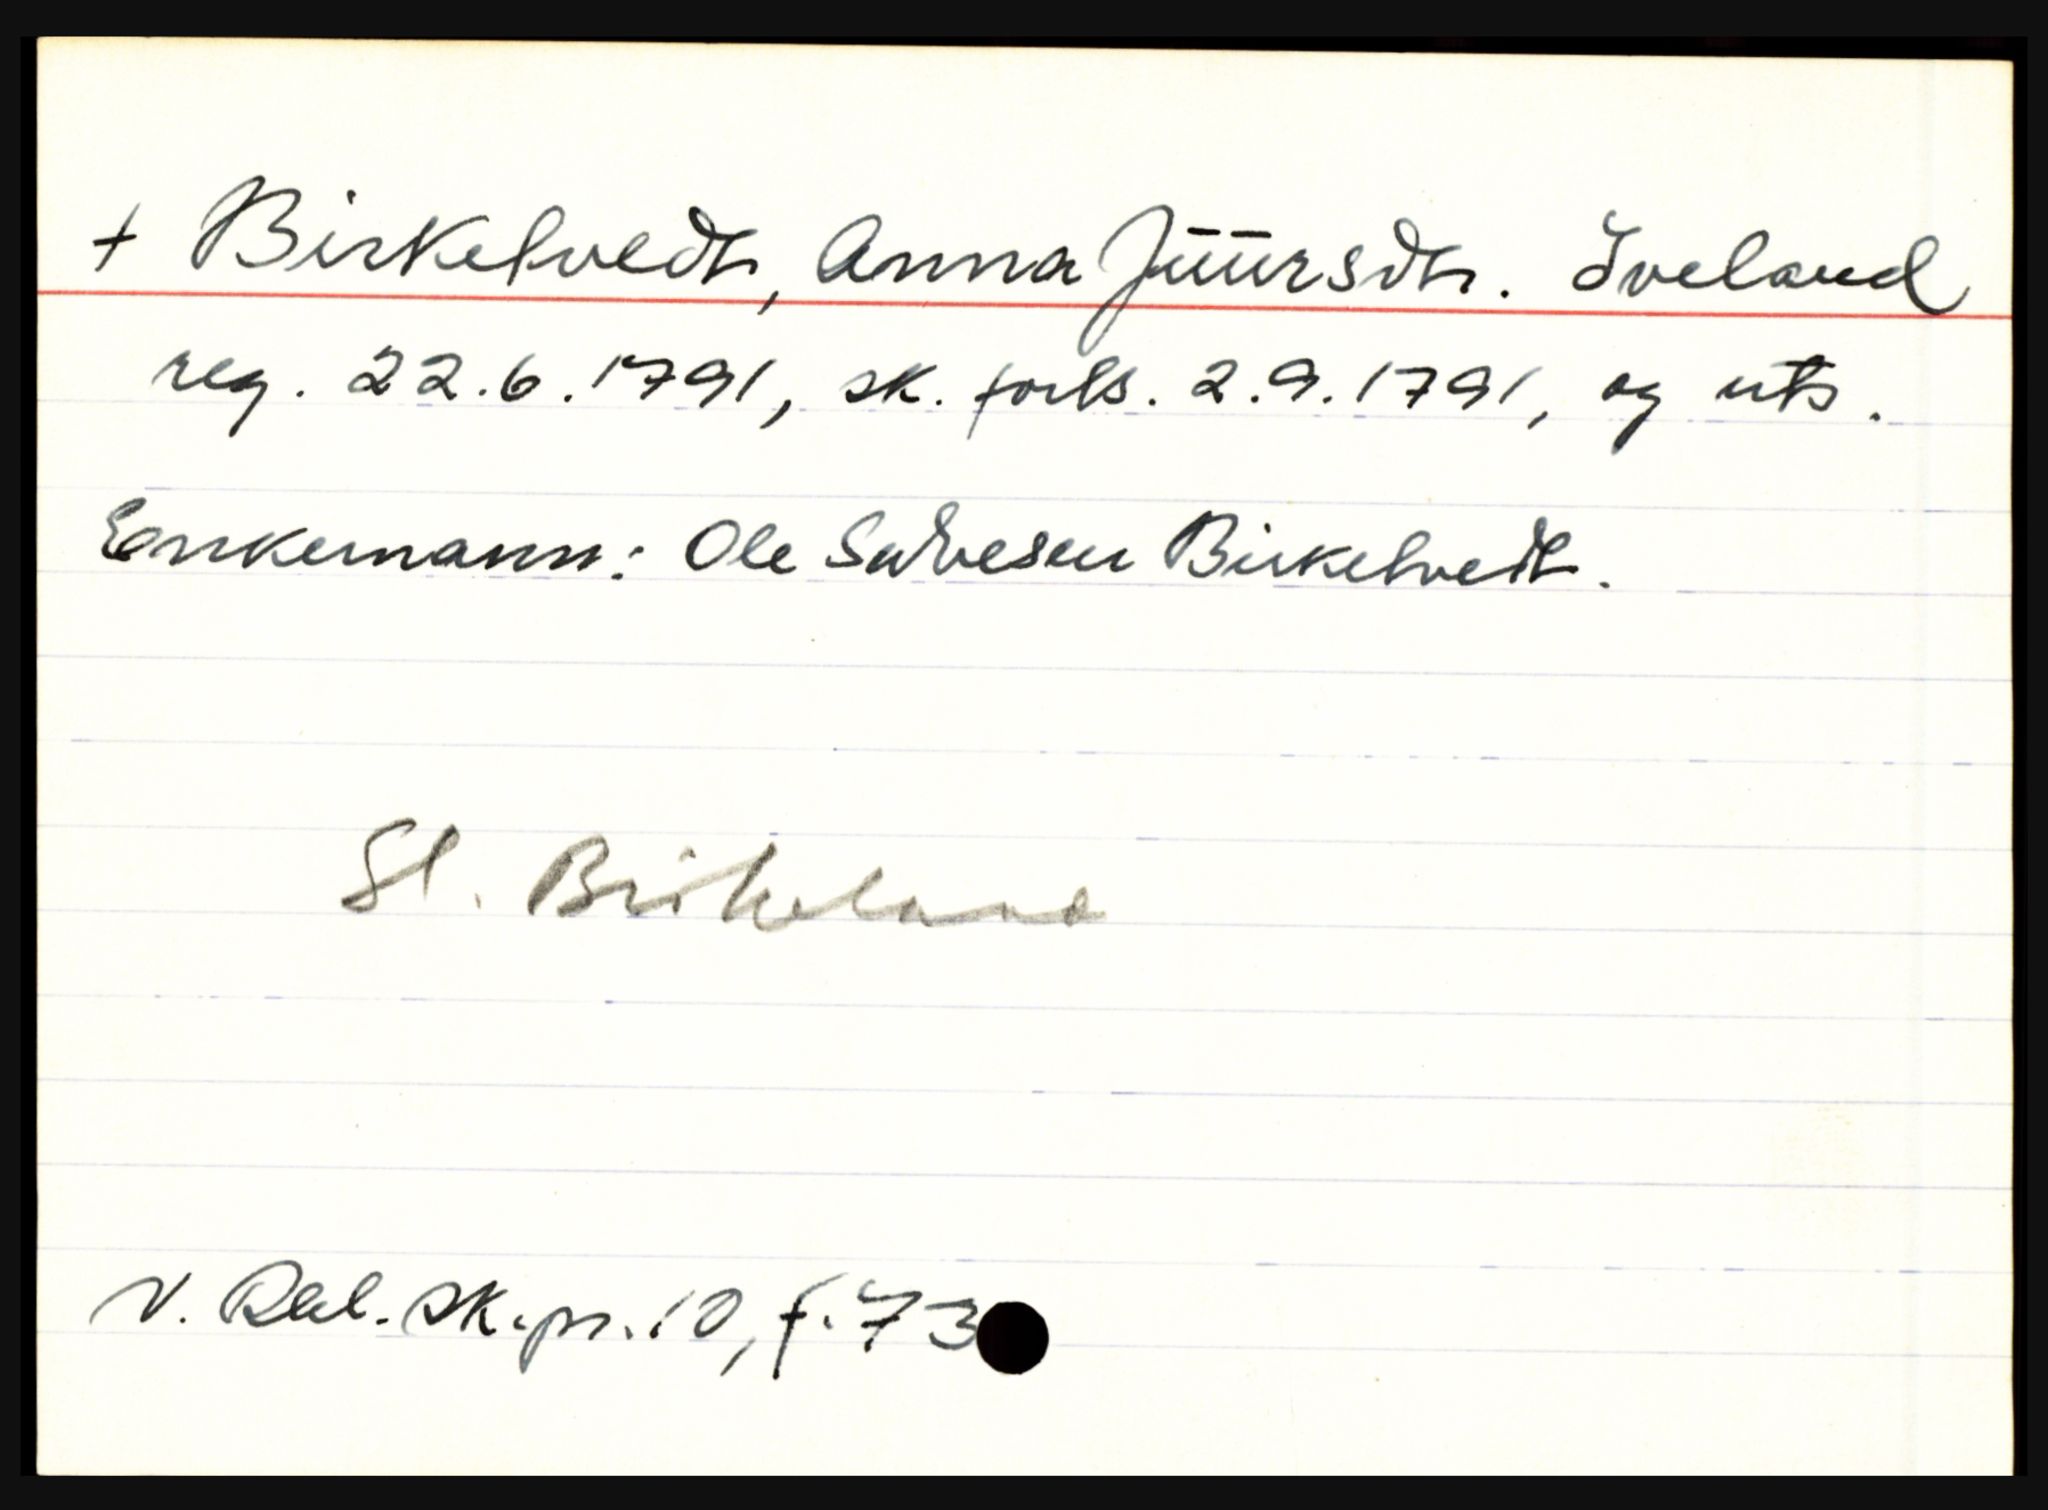 + Birketvedt, Anna Jūūrsdtr. Iveland
reg. 22.6.1791, sk. forls. 2.9.1791, og uts.
Enkemann: Ole Salvesen Birketvedt.
Sl. Birkeland
N. Rbl. sk.pr. 10, f. 73